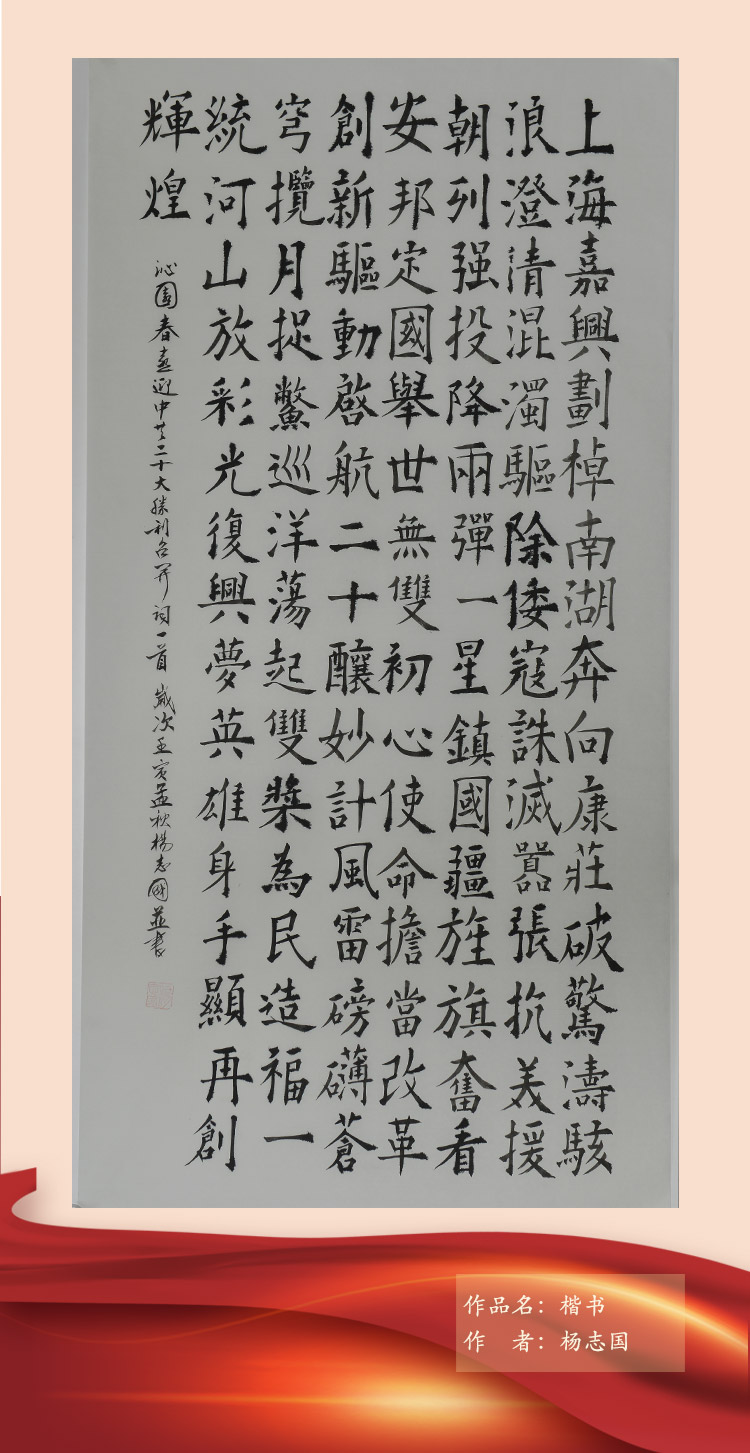 上海嘉興劃棹南湖奔向康莊破驚濤駭
浪澄清混濁驅除倭寇誅滅囂張抗美援
朝列强投降兩彈一星鎮國疆旌旗奮看
安邦定國舉世無雙初心使命擔當改革
創新驅動啓航二十釀妙計風雷磅礴蒼
穹攬月捉鱉巡洋蕩起雙槳為民造福一
統河山放彩光復興夢英雄身手顯再創
輝煌
沁園春喜迎中共二十大勝利召開詞一首 歲次壬寅孟秋楊志國並書
作品名：楷书
作 者：杨志国